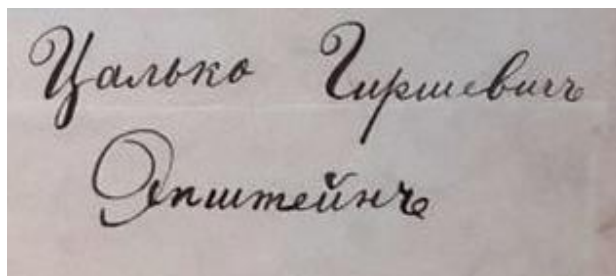 Цалько Гиршевичъ
Эпштейнъ